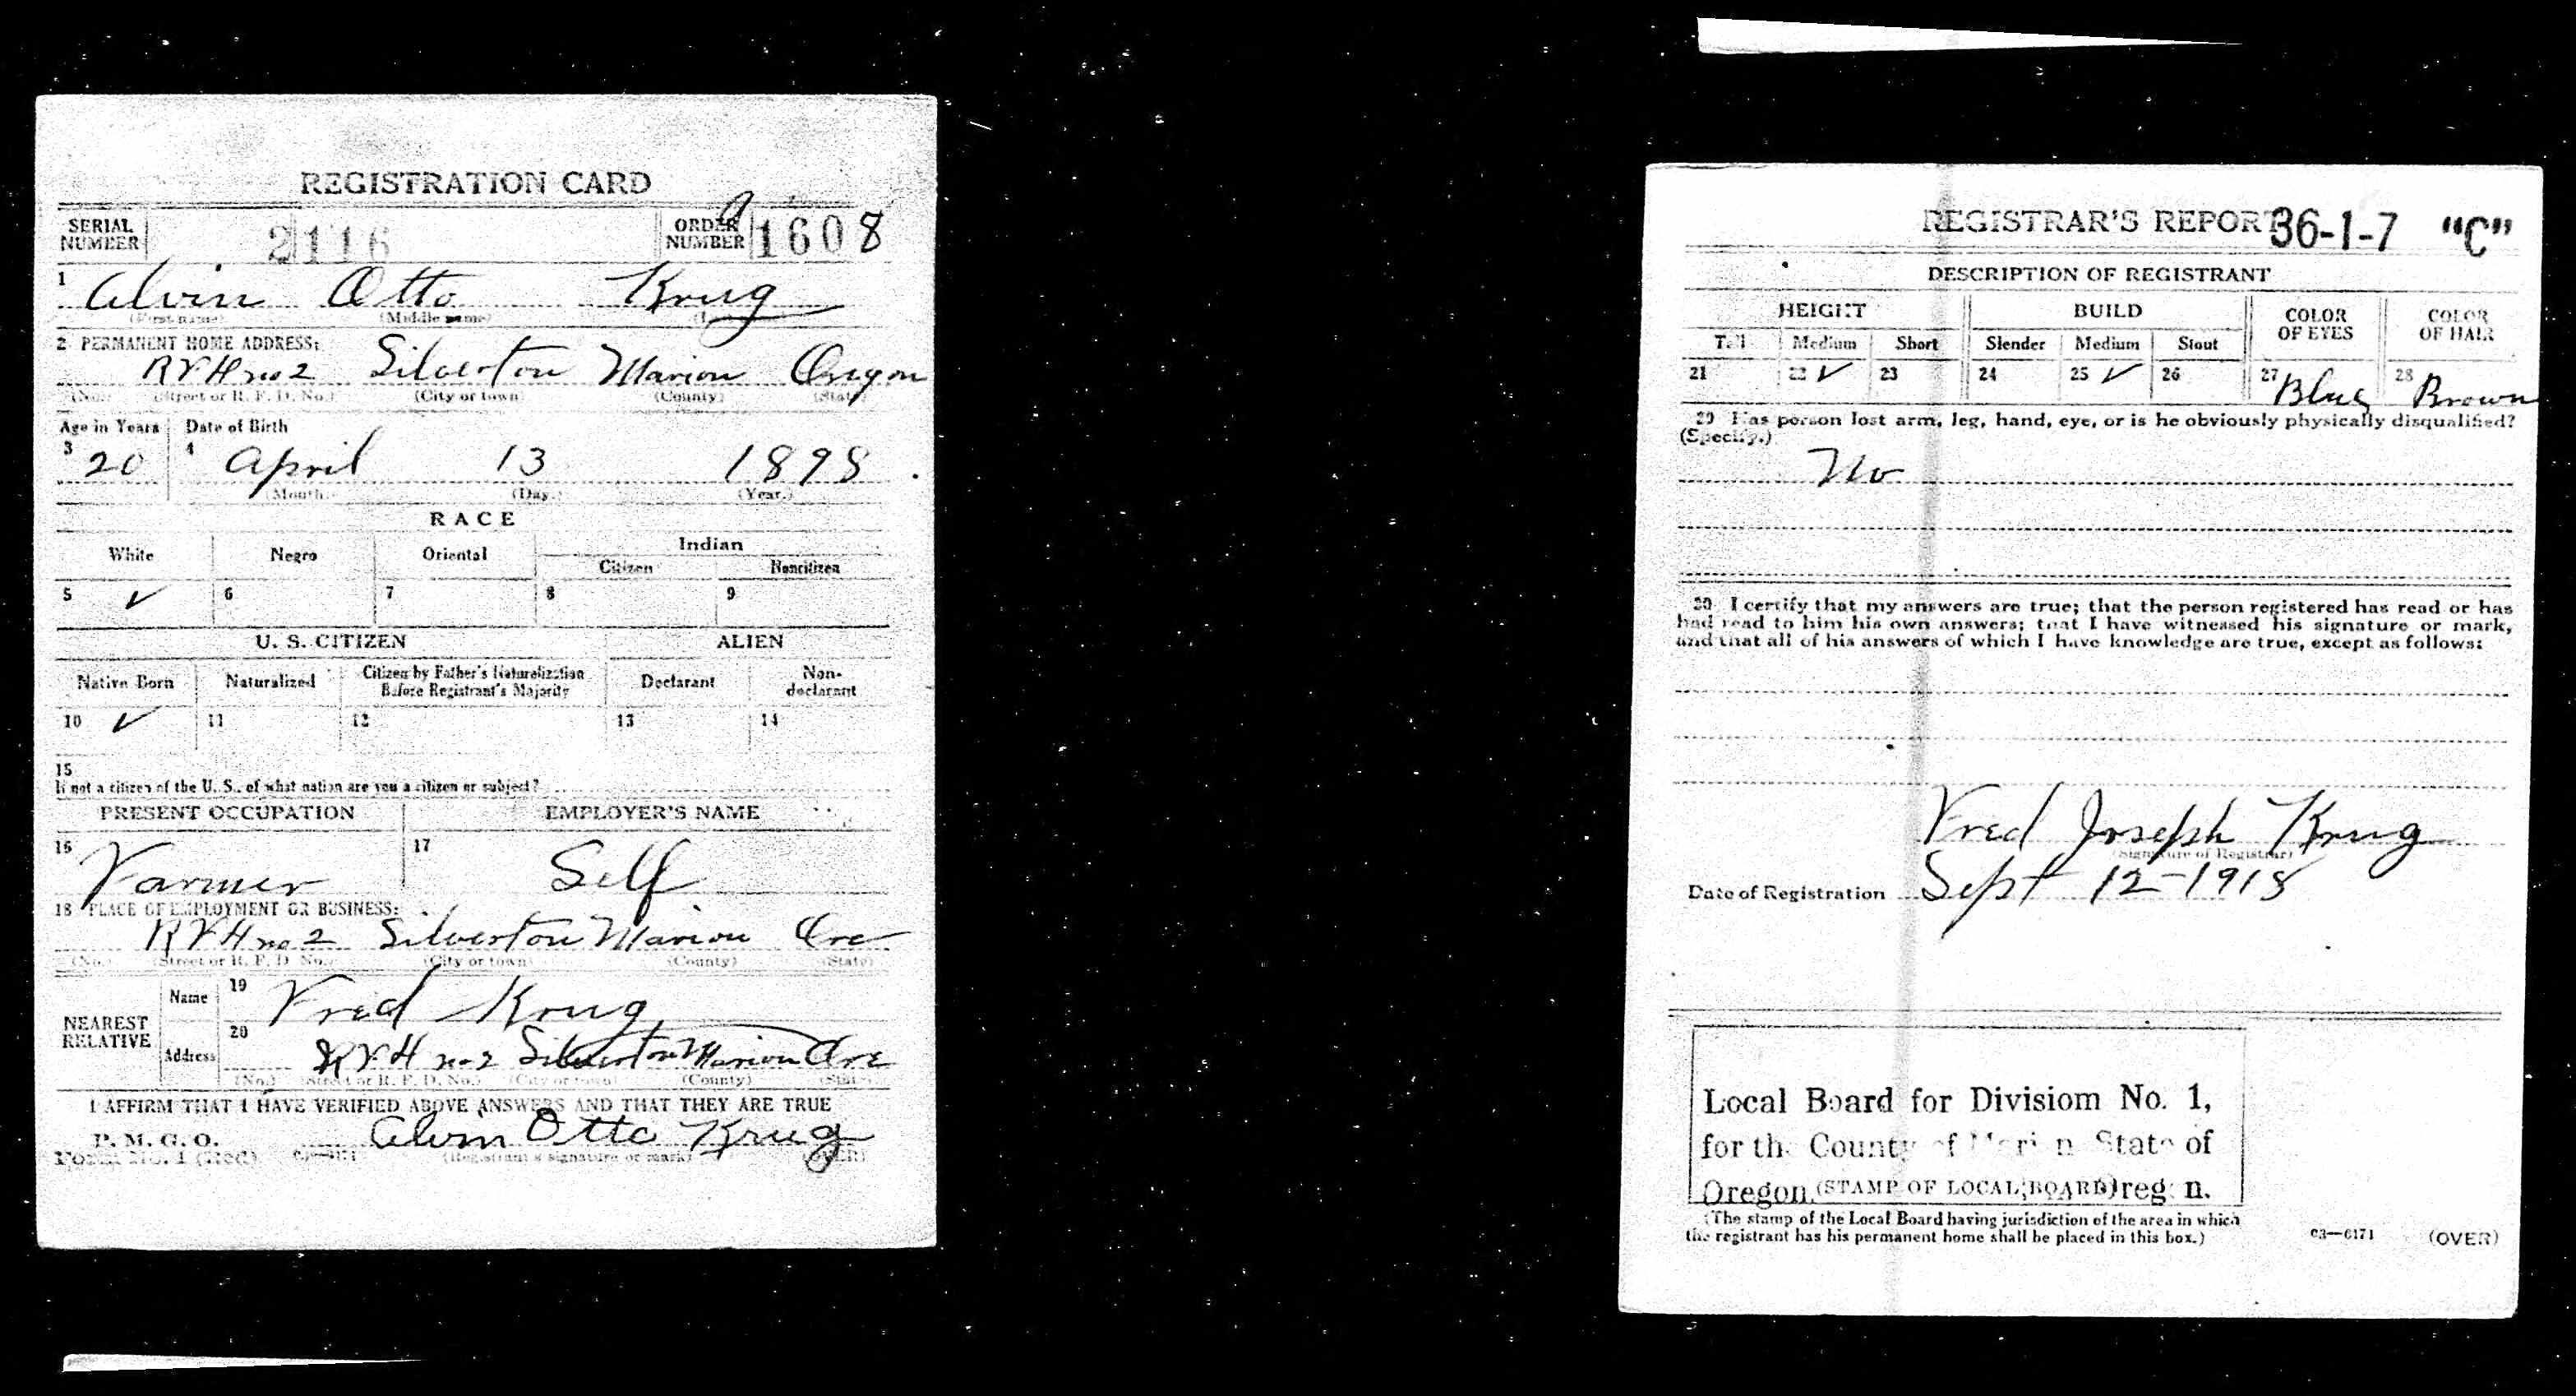 REGISTRATION CARD
SERIAL NUMBER 2116 ORDER NUMBER A 1608
1 Alvin Otto Krug
(First name) (Middle name)
2 PERMANENT HOME ADDRESS:
no 2 Silverton Marion Oregon
(No.) (Street or R. F. D. No.) (City or town) (County) (State)
Age in Years Date of Birth
3 20 4 April 13 1898
(Month.) (Day.) (Year.)
RACE
White Negro Oriental Indian
Citizen Noncitizen
5 ✓ 6 7 8 9
U. S. CITIZEN ALIEN
Native Born Naturalized Citizen by Father's Naturalization Before Registrant's Majority Declarant Non-declarant
10 ✓ 11 12 13 14
15
If not a citizen of the U. S., of what nation are you a citizen or subject?
PRESENT OCCUPATION EMPLOYER'S NAME
16 Farmer 17 Self
18 PLACE OF EMPLOYMENT OR BUSINESS:
no 2 Silverton Marion Ore
(No.) (Street or R. F. D. No.) (City or town) (County) (State)
NEAREST RELATIVE
Name 19 Fred Krug
Address 20 no 2 Silverton Marion Ore
(No.) (Street or R. F. D. No.) (City or town) (County) (State)
I AFFIRM THAT I HAVE VERIFIED ABOVE ANSWERS AND THAT THEY ARE TRUE
P. M. G. O. Alvin Otto Krug
Form No. 1 (Red) (Registrant's signature or mark) (OVER)
REGISTRAR'S REPORT 36-1-7 "C"
DESCRIPTION OF REGISTRANT
HEIGHT BUILD COLOR OF EYES COLOR OF HAIR
Tall Medium Short Slender Medium Stout
21 22 ✓ 23 24 25 ✓ 26 27 Blue 28 Brown
29 Has person lost arm, leg, hand, eye, or is he obviously physically disqualified?
(Specify.)
No
30 I certify that my answers are true; that the person registered has read or has
had read to him his own answers; that I have witnessed his signature or mark,
and that all of his answers of which I have knowledge are true, except as follows:
Fred Joseph Krug
(Signature of Registrar)
Date of Registration Sept 12-1918
Local Board for Divisiom No. 1,
for the County of Marion State of
Oregon. (STAMP OF LOCAL BOARD)
(The stamp of the Local Board having jurisdiction of the area in which
the registrant has his permanent home shall be placed in this box.)
03—6171 (OVER)